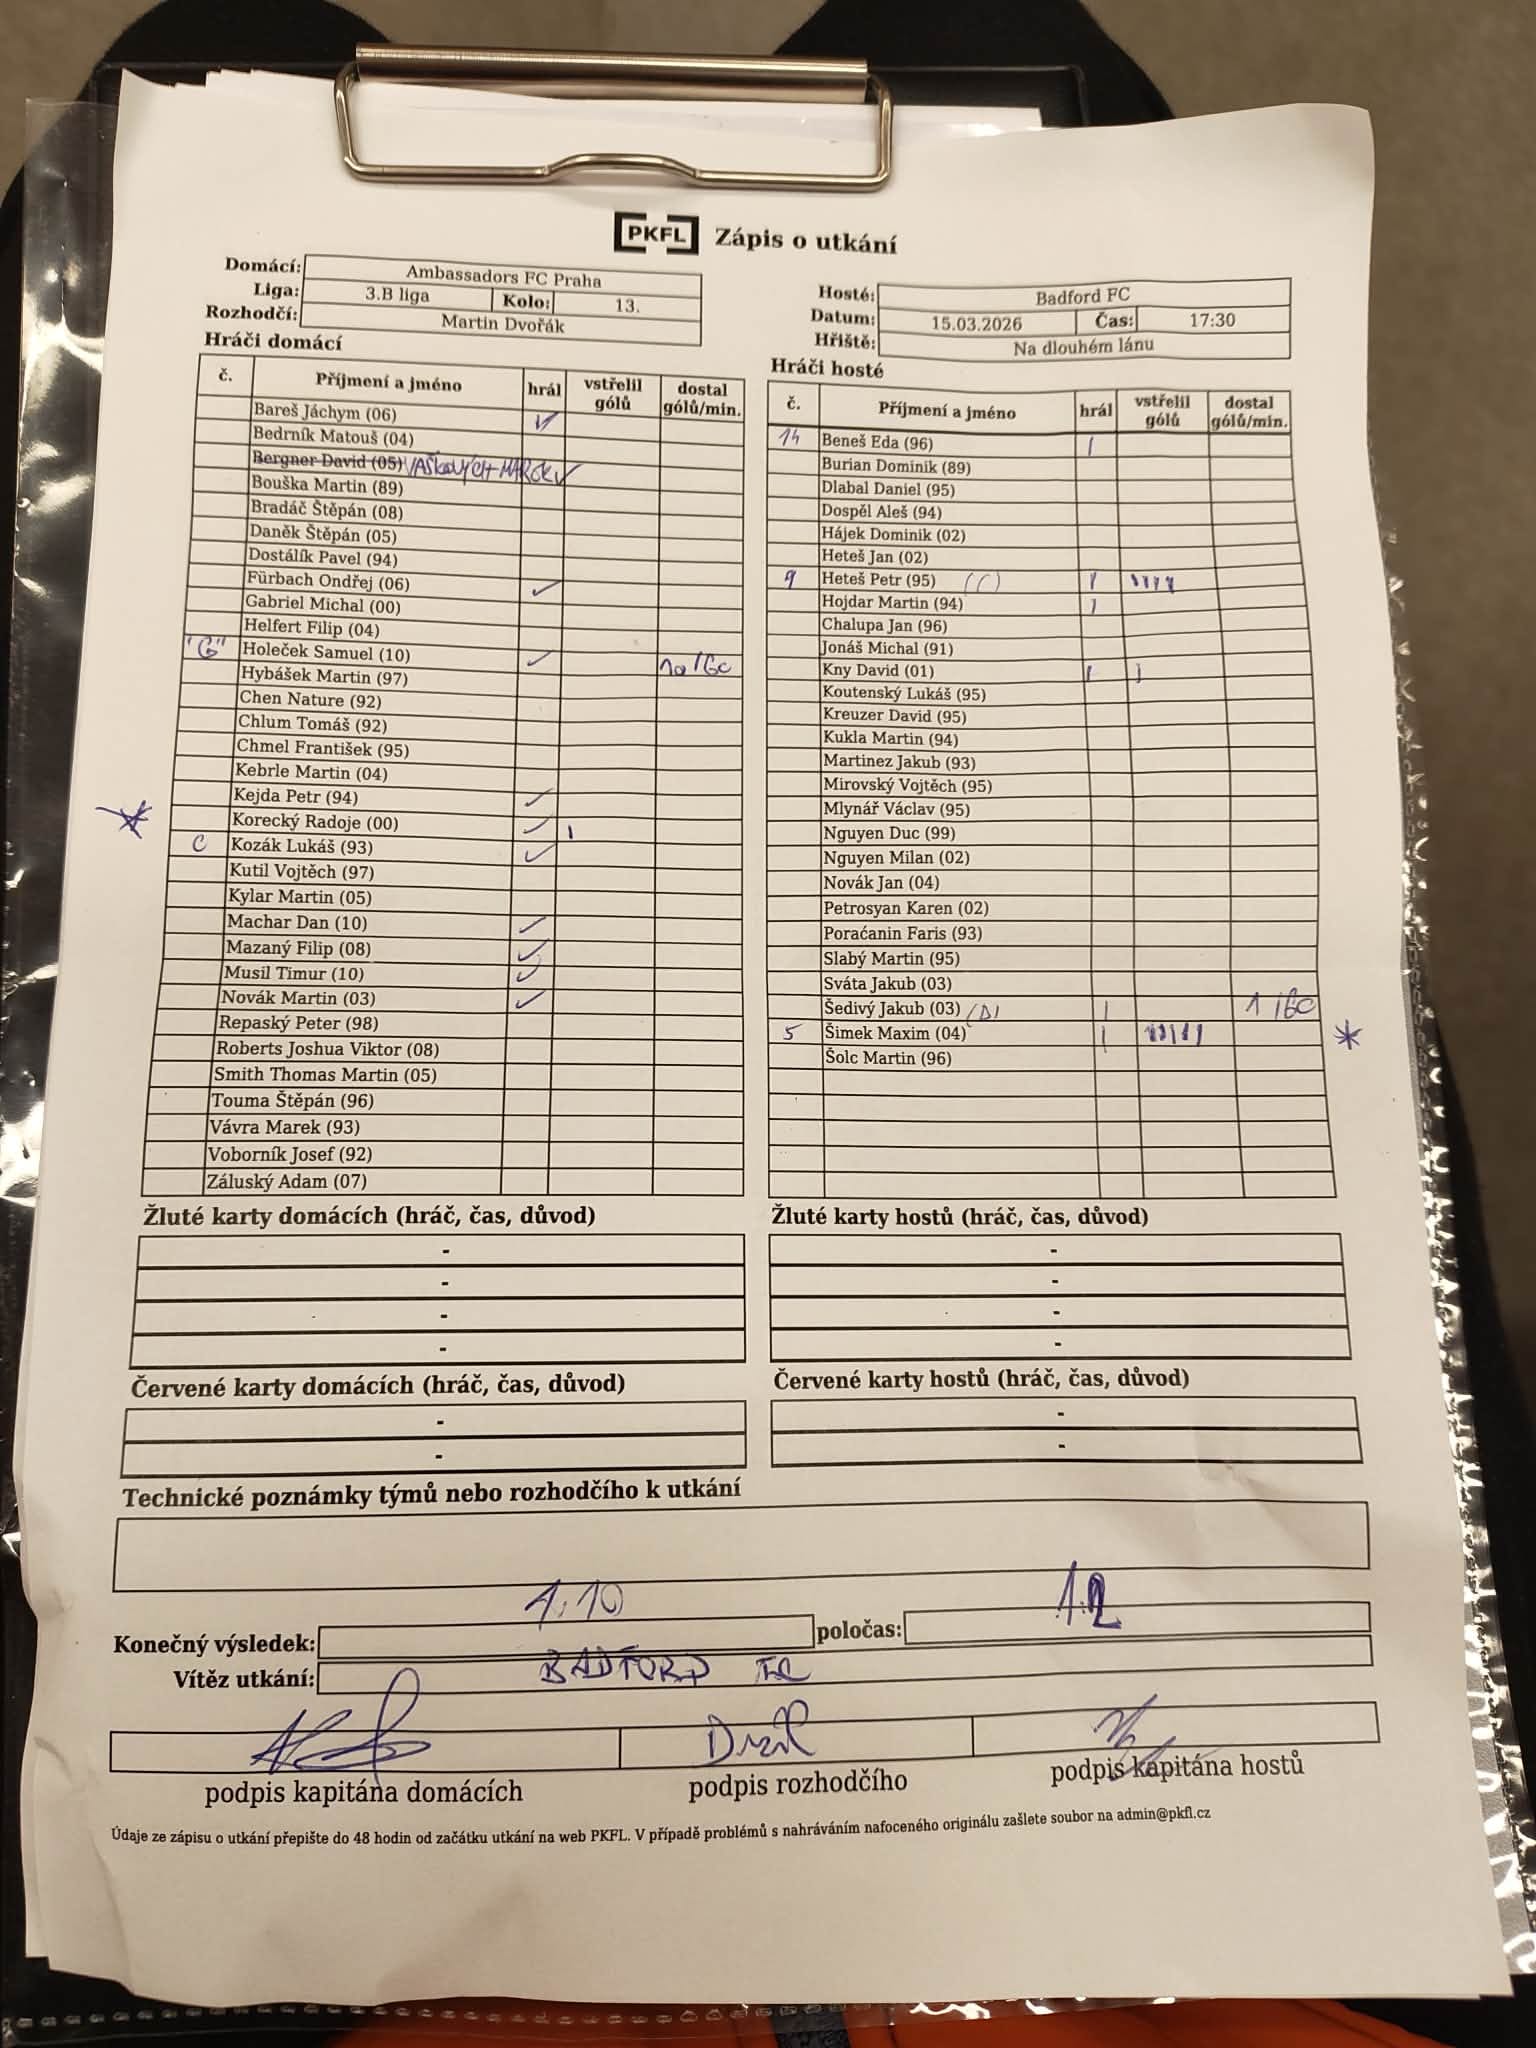 PKFL Zápis o utkání
Domácí: Ambassadors FC Praha
Liga: 3.B liga Kolo: 13.
Rozhodčí: Martin Dvořák
Hosté: Badford FC
Datum: 15.03.2026 Čas: 17:30
Hřiště: Na dlouhém lánu
Hráči domácí
č. Příjmení a jméno hrál vstřelil gólů dostal gólů/min.
Bareš Jáchym (06)
Bedrník Matouš (04)
Bergner David (05)
Bouška Martin (89)
Bradáč Štěpán (08)
Daněk Štěpán (05)
Dostálík Pavel (94)
Fürbach Ondřej (06)
Gabriel Michal (00)
Helfert Filip (04)
"G" Holeček Samuel (10) 10/60
Hybášek Martin (97)
Chen Nature (92)
Chlum Tomáš (92)
Chmel František (95)
Kebrle Martin (04)
Kejda Petr (94)
Korecký Radoje (00) I
C Kozák Lukáš (93)
Kutil Vojtěch (97)
Kylar Martin (05)
Machar Dan (10)
Mazaný Filip (08)
Musil Timur (10)
Novák Martin (03)
Repaský Peter (98)
Roberts Joshua Viktor (08)
Smith Thomas Martin (05)
Touma Štěpán (96)
Vávra Marek (93)
Voborník Josef (92)
Záluský Adam (07)
Hráči hosté
č. Příjmení a jméno hrál vstřelil gólů dostal gólů/min.
14 Beneš Eda (96) I
Burian Dominik (89)
Dlabal Daniel (95)
Dospěl Aleš (94)
Hájek Dominik (02)
Heteš Jan (02)
9 Heteš Petr (95) (C) I IIII
Hojdar Martin (94) I
Chalupa Jan (96)
Jonáš Michal (91)
Kny David (01) I I
Koutenský Lukáš (95)
Kreuzer David (95)
Kukla Martin (94)
Martinez Jakub (93)
Mirovský Vojtěch (95)
Mlynář Václav (95)
Nguyen Duc (99)
Nguyen Milan (02)
Novák Jan (04)
Petrosyan Karen (02)
Poraćanin Faris (93)
Slabý Martin (95)
Sváta Jakub (03)
Šedivý Jakub (03) I 1/60
5 Šimek Maxim (04) I IIIII
Šolc Martin (96)
Žluté karty domácích (hráč, čas, důvod)
-
-
-
-
Žluté karty hostů (hráč, čas, důvod)
-
-
-
-
Červené karty domácích (hráč, čas, důvod)
-
-
Červené karty hostů (hráč, čas, důvod)
-
-
Technické poznámky týmů nebo rozhodčího k utkání
Konečný výsledek: 1:10 poločas: 1:2
Vítěz utkání: BADFORD FC
podpis kapitána domácích podpis rozhodčího podpis kapitána hostů
Údaje ze zápisu o utkání přepište do 48 hodin od začátku utkání na web PKFL. V případě problémů s nahráváním nafoceného originálu zašlete soubor na admin@pkfl.cz